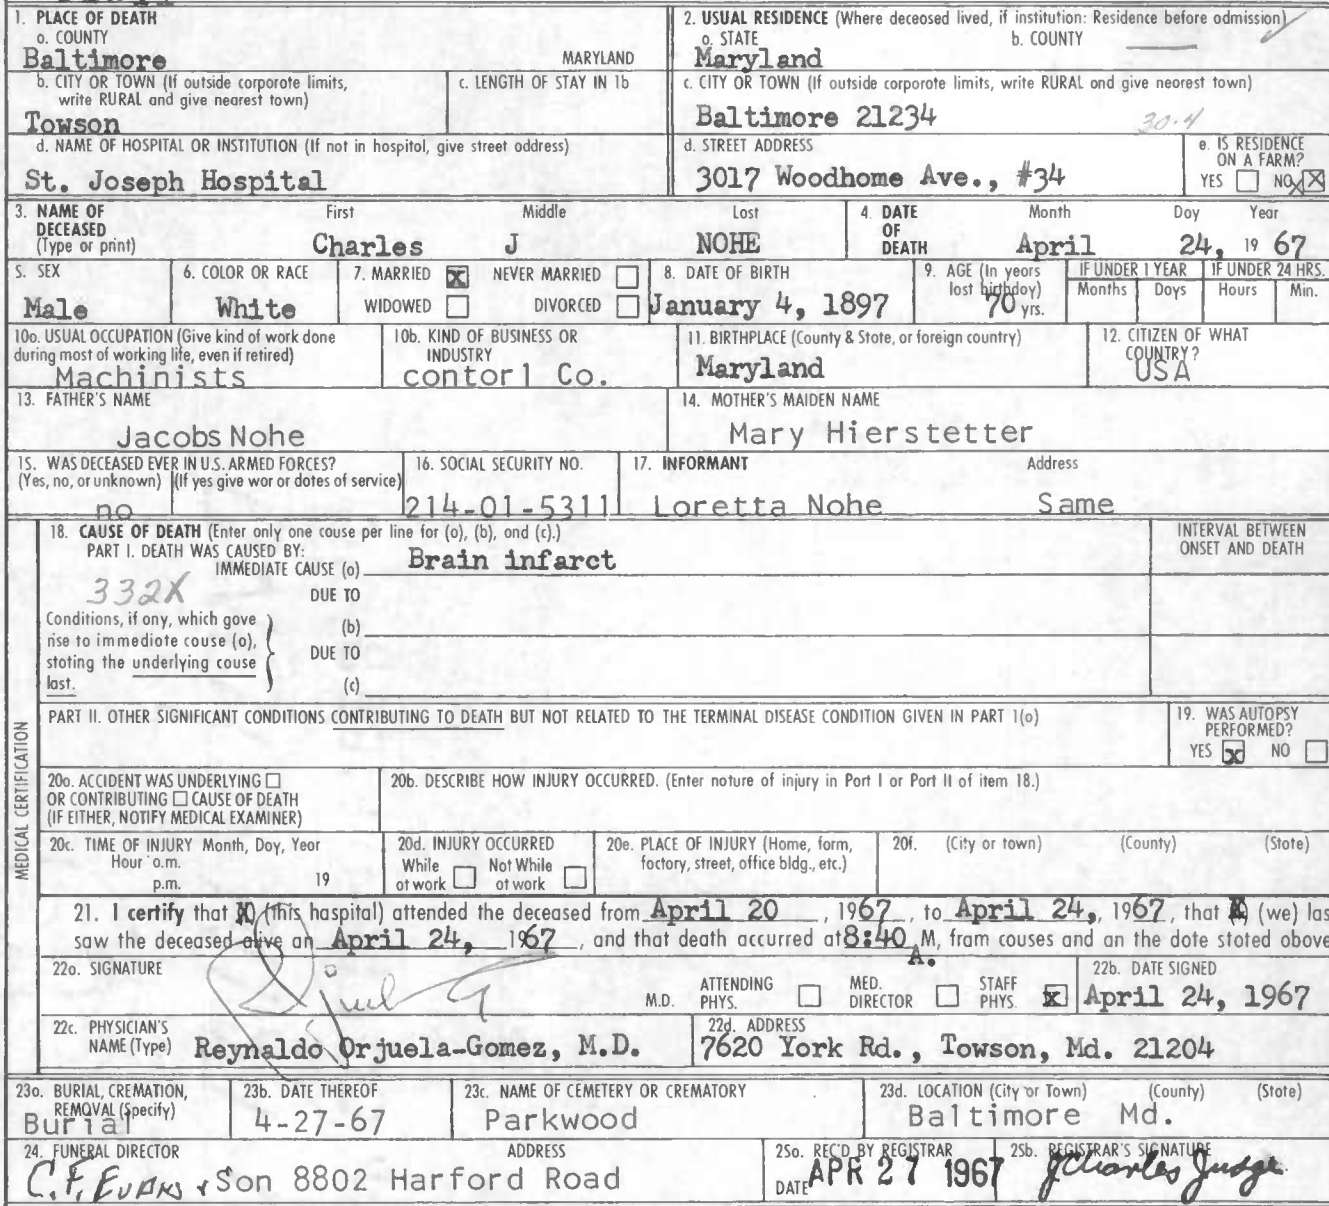 1. PLACE OF DEATH
a. COUNTY
Baltimore MARYLAND
2. USUAL RESIDENCE (Where deceased lived, if institution: Residence before admission)
a. STATE b. COUNTY
Maryland
b. CITY OR TOWN (If outside corporate limits, write RURAL and give nearest town)
Towson
c. LENGTH OF STAY IN 1b
c. CITY OR TOWN (If outside corporate limits, write RURAL and give nearest town)
Baltimore 21234 30-4
d. NAME OF HOSPITAL OR INSTITUTION (If not in hospital, give street address)
St. Joseph Hospital
d. STREET ADDRESS
3017 Woodhome Ave., #34
e. IS RESIDENCE ON A FARM?
YES NO X
3. NAME OF DECEASED (Type or print)
First Middle Last
Charles J NOHE
4. DATE OF DEATH
Month Day Year
April 24, 19 67
5. SEX
Male
6. COLOR OR RACE
White
7. MARRIED X NEVER MARRIED
WIDOWED DIVORCED
8. DATE OF BIRTH
January 4, 1897
9. AGE (In years last birthday)
70 yrs.
IF UNDER 1 YEAR
Months Days
IF UNDER 24 HRS.
Hours Min.
10a. USUAL OCCUPATION (Give kind of work done during most of working life, even if retired)
Machinists
10b. KIND OF BUSINESS OR INDUSTRY
contorl Co.
11. BIRTHPLACE (County & State, or foreign country)
Maryland
12. CITIZEN OF WHAT COUNTRY?
USA
13. FATHER'S NAME
Jacobs Nohe
14. MOTHER'S MAIDEN NAME
Mary Hierstetter
15. WAS DECEASED EVER IN U.S. ARMED FORCES?
(Yes, no, or unknown) (If yes give war or dates of service)
no
16. SOCIAL SECURITY NO.
214-01-5311
17. INFORMANT Address
Loretta Nohe Same
MEDICAL CERTIFICATION
18. CAUSE OF DEATH (Enter only one cause per line for (a), (b), and (c).)
PART I. DEATH WAS CAUSED BY:
IMMEDIATE CAUSE (a) Brain infarct
INTERVAL BETWEEN ONSET AND DEATH
332X
DUE TO
Conditions, if any, which gave rise to immediate cause (a), stating the underlying cause last.
(b)
DUE TO
(c)
PART II. OTHER SIGNIFICANT CONDITIONS CONTRIBUTING TO DEATH BUT NOT RELATED TO THE TERMINAL DISEASE CONDITION GIVEN IN PART 1(a)
19. WAS AUTOPSY PERFORMED?
YES X NO
20a. ACCIDENT WAS UNDERLYING
OR CONTRIBUTING CAUSE OF DEATH
(IF EITHER, NOTIFY MEDICAL EXAMINER)
20b. DESCRIBE HOW INJURY OCCURRED. (Enter nature of injury in Part I or Part II of item 18.)
20c. TIME OF INJURY Month, Day, Year
Hour a.m.
p.m. 19
20d. INJURY OCCURRED
While at work Not While at work
20e. PLACE OF INJURY (Home, farm, factory, street, office bldg., etc.)
20f. (City or town) (County) (State)
21. I certify that (this hospital) attended the deceased from April 20, 1967, to April 24,, 1967, that (we) las
saw the deceased alive an April 24, 1967, and that death accurred at 8:40 A. M, fram causes and an the date stated above
22a. SIGNATURE
M.D. ATTENDING PHYS. MED. DIRECTOR STAFF PHYS. X
22b. DATE SIGNED
April 24, 1967
22c. PHYSICIAN'S NAME (Type) Reynaldo Orjuela-Gomez, M.D.
22d. ADDRESS
7620 York Rd., Towson, Md. 21204
23a. BURIAL, CREMATION, REMOVAL (Specify)
Burial
23b. DATE THEREOF
4-27-67
23c. NAME OF CEMETERY OR CREMATORY
Parkwood
23d. LOCATION (City or Town) (County) (State)
Baltimore Md.
24. FUNERAL DIRECTOR ADDRESS
C.F. Evans + Son 8802 Harford Road
25a. REC'D BY REGISTRAR
DATE APR 27 1967
25b. REGISTRAR'S SIGNATURE
J Charles Judge